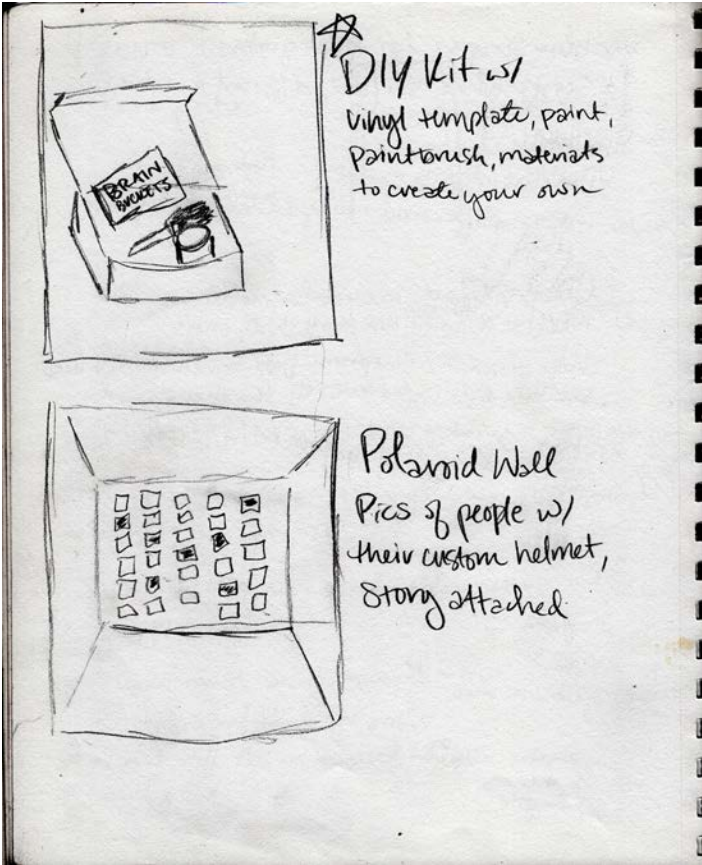 DIY Kit w/
vinyl template, paint,
paintbrush, materials
to create your own
BRAIN
BUCKETS
Polaroid Wall
Pics of people w/
their custom helmet,
Story attached